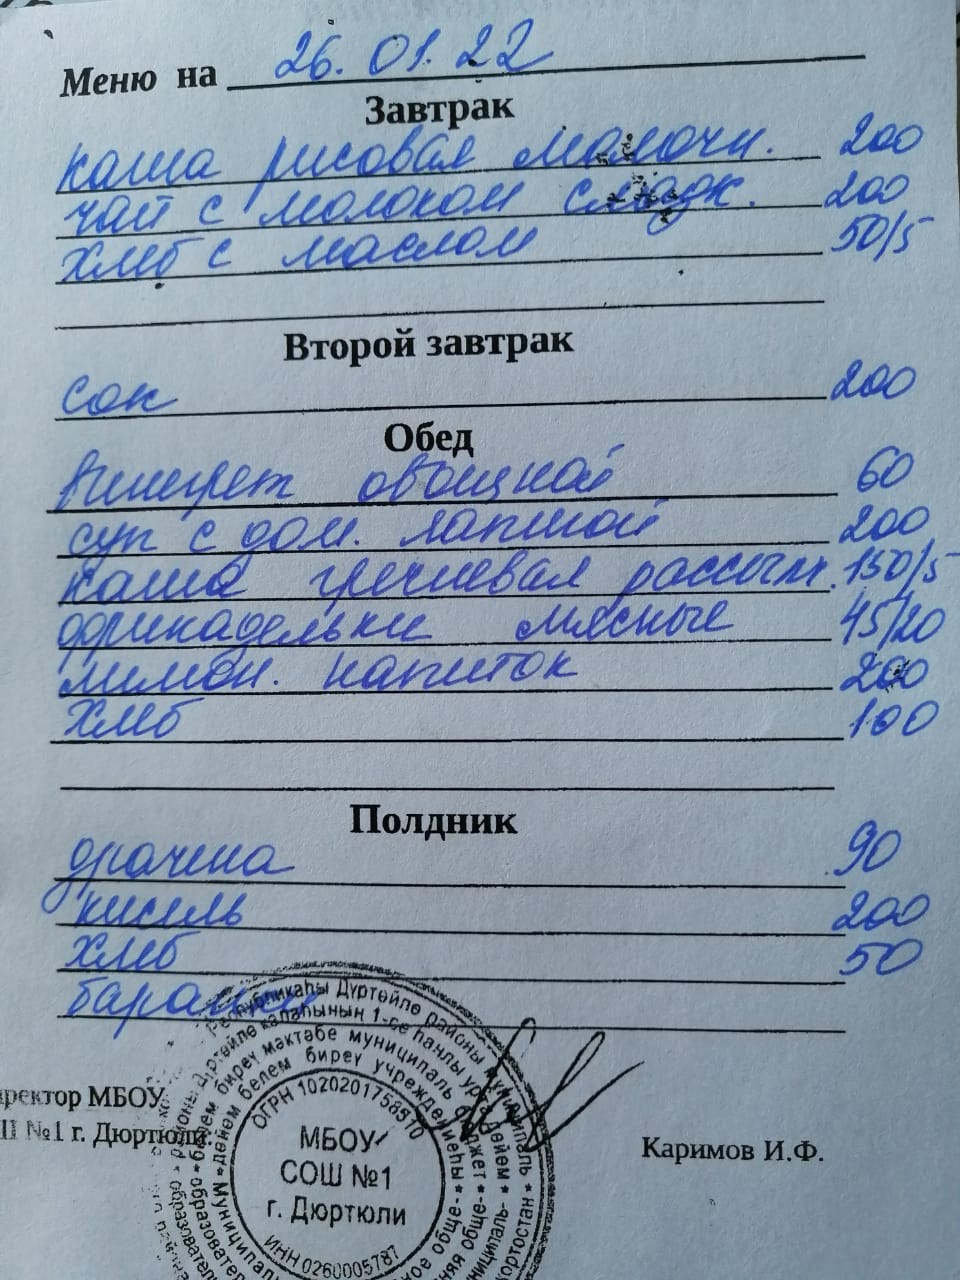 Меню на 26.01.22
Завтрак
каша рисовая молочн. 200
чай с молоком сладк. 200
хлеб с маслом 50/5
Второй завтрак
сок 200
Обед
винегрет овощной 60
суп с дом. лапшой 200
каша гречневая рассып. 150/5
фрикадельки мясные 45/20
лимон. напиток 200
хлеб 100
Полдник
драчена 90
кисель 200
хлеб 50
иректор МБОУ
Ш №1 г. Дюртюли
Каримов И.Ф.
Республикаһы Дүртөйлө районы муниципаль
ҡалаһының 1-се һанлы урта дөйөм
белем биреү мәктәбе муниципаль бюджет
дөйөм белем биреү учреждениеһы
ОГРН 1020201758510
МБОУ
СОШ №1
г. Дюртюли
ИНН 0260005787